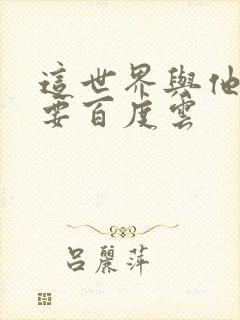 這世界與他
要百度雲
呂麗萍